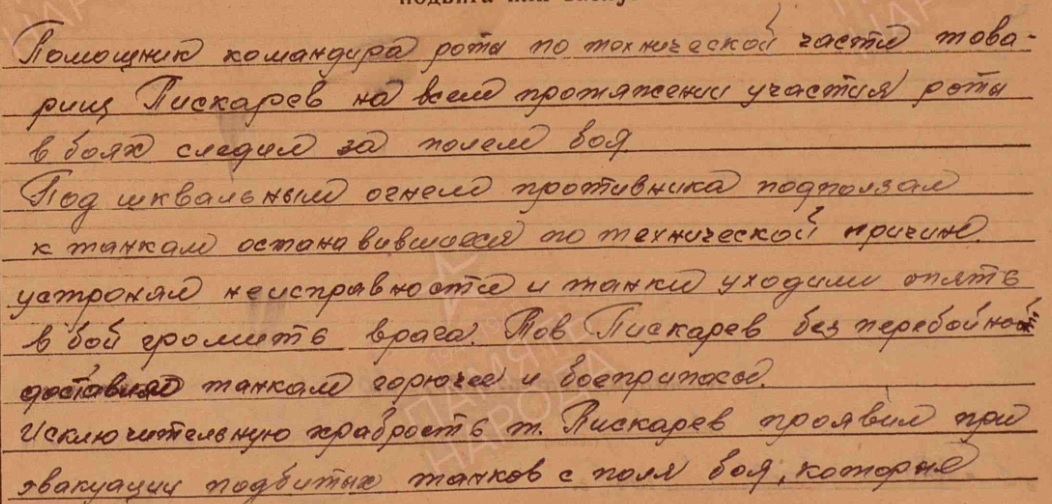 подвига или заслуг
Помощник командира роты по технической части това-
рищ Пискарев на всем протяжении участия роты
в боях следил за полем боя
Под шквальным огнем противника подползал
к танкам останавившиеся по технической причине.
устронял неисправности и танки уходили опять
в бой громить врага. Тов Пискарев без перебойно
доставлял танкам горючее и боеприпасы.
Исключительную храбрость т. Пискарев проявил при
эвакуации подбитых танков с поля боя, которые
ПАМЯТЬ
НАРОДА